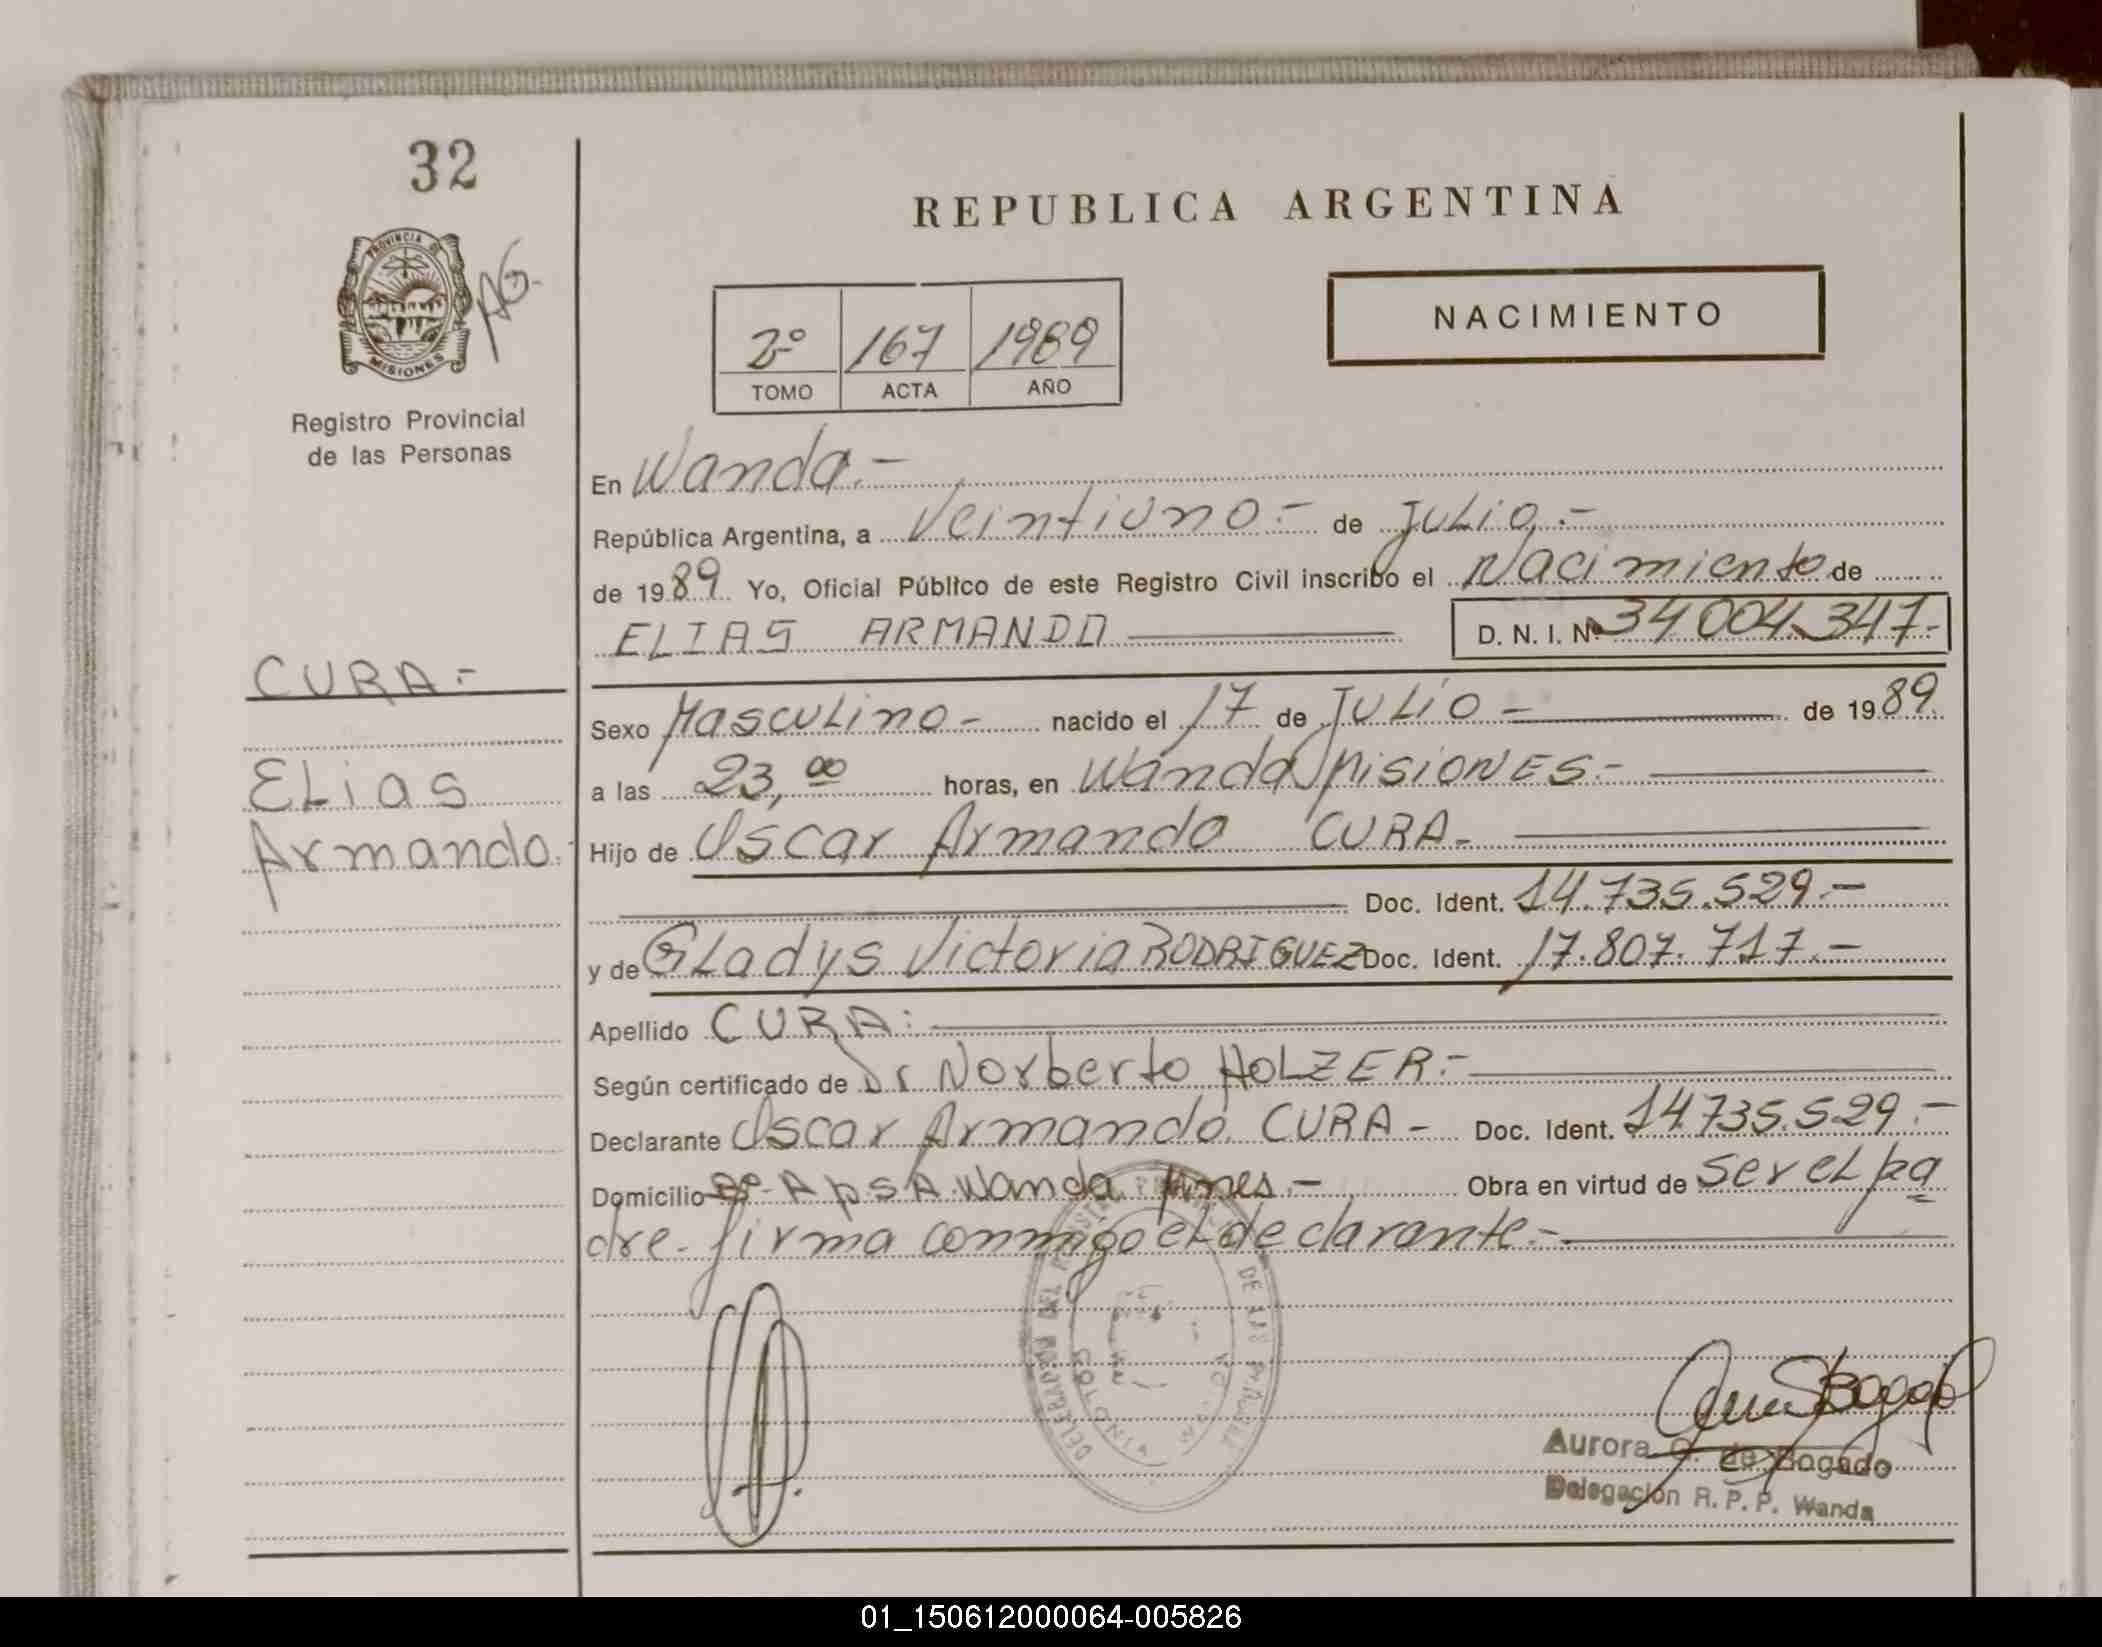 32
REPUBLICA ARGENTINA
PROVINCIA DE
MISIONES
AG.
NACIMIENTO
2º 167 1989
TOMO ACTA AÑO
Registro Provincial
de las Personas
En Wanda.-
República Argentina, a Veintiuno.- de Julio.-
de 1989. Yo, Oficial Público de este Registro Civil inscribo el Nacimiento de
ELIAS ARMANDO D. N. I. Nº 34004.347.-
CURA.-
Sexo Masculino- nacido el 17 de JULIO- de 1989.
Elias
a las 23,00 horas, en Wanda, MISIONES.-
Armando.-
Hijo de Oscar Armando CURA-
Doc. Ident. 14.735.529.-
y de Gladys Victoria RODRIGUEZ Doc. Ident. 17.807.717.-
Apellido CURA:
Según certificado de Dr Norberto HOLZER.-
Declarante Oscar Armando CURA- Doc. Ident. 14735.529.-
Domicilio Bº- ApsA Wanda Mnes.- Obra en virtud de ser el pa
dre. firma conmigo el declarante.-
DELEGACION DEL REGISTRO DE LAS
Aurora G. de Bogado
Delegación R. P. P. Wanda
01_150612000064-005826